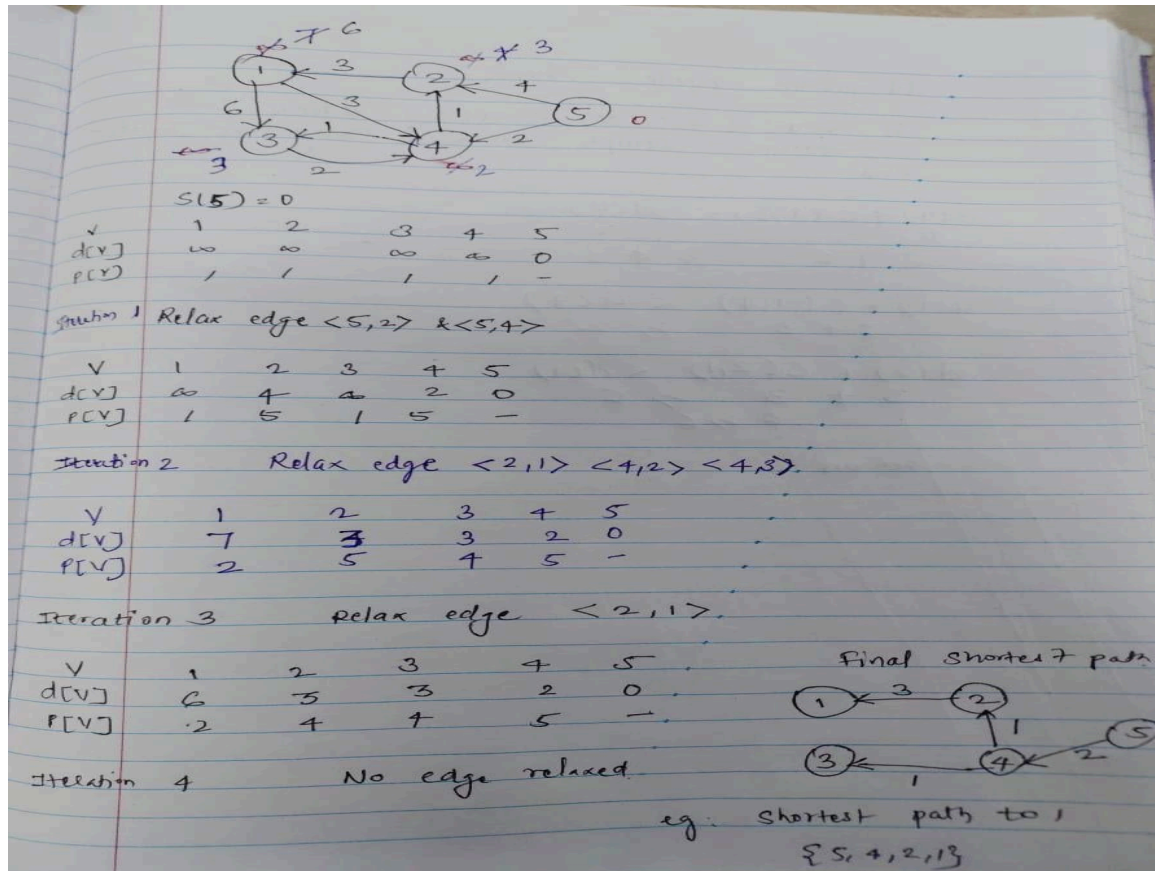 ∞ 7 6
∞ 4 3
1 3 2 4
6 3 1 5 0
3 1 4 2
∞ 3 2 ∞ 2
S(5) = 0
V 1 2 3 4 5
d[V] ∞ ∞ ∞ ∞ 0
P[V] / / / / -
Iteration 1 Relax edge <5,2> & <5,4>
V 1 2 3 4 5
d[V] ∞ 4 ∞ 2 0
P[V] / 5 / 5 -
Iteration 2 Relax edge <2,1> <4,2> <4,3>.
V 1 2 3 4 5
d[V] 7 3 3 2 0
P[V] 2 5 4 5 -
Iteration 3 Relax edge <2,1>.
V 1 2 3 4 5
d[V] 6 3 3 2 0
P[V] 2 4 4 5 -
Iteration 4 No edge relaxed
Final shortest path
1 3 2
1 5
3 1 4 2
eg: Shortest path to 1
{5,4,2,1}